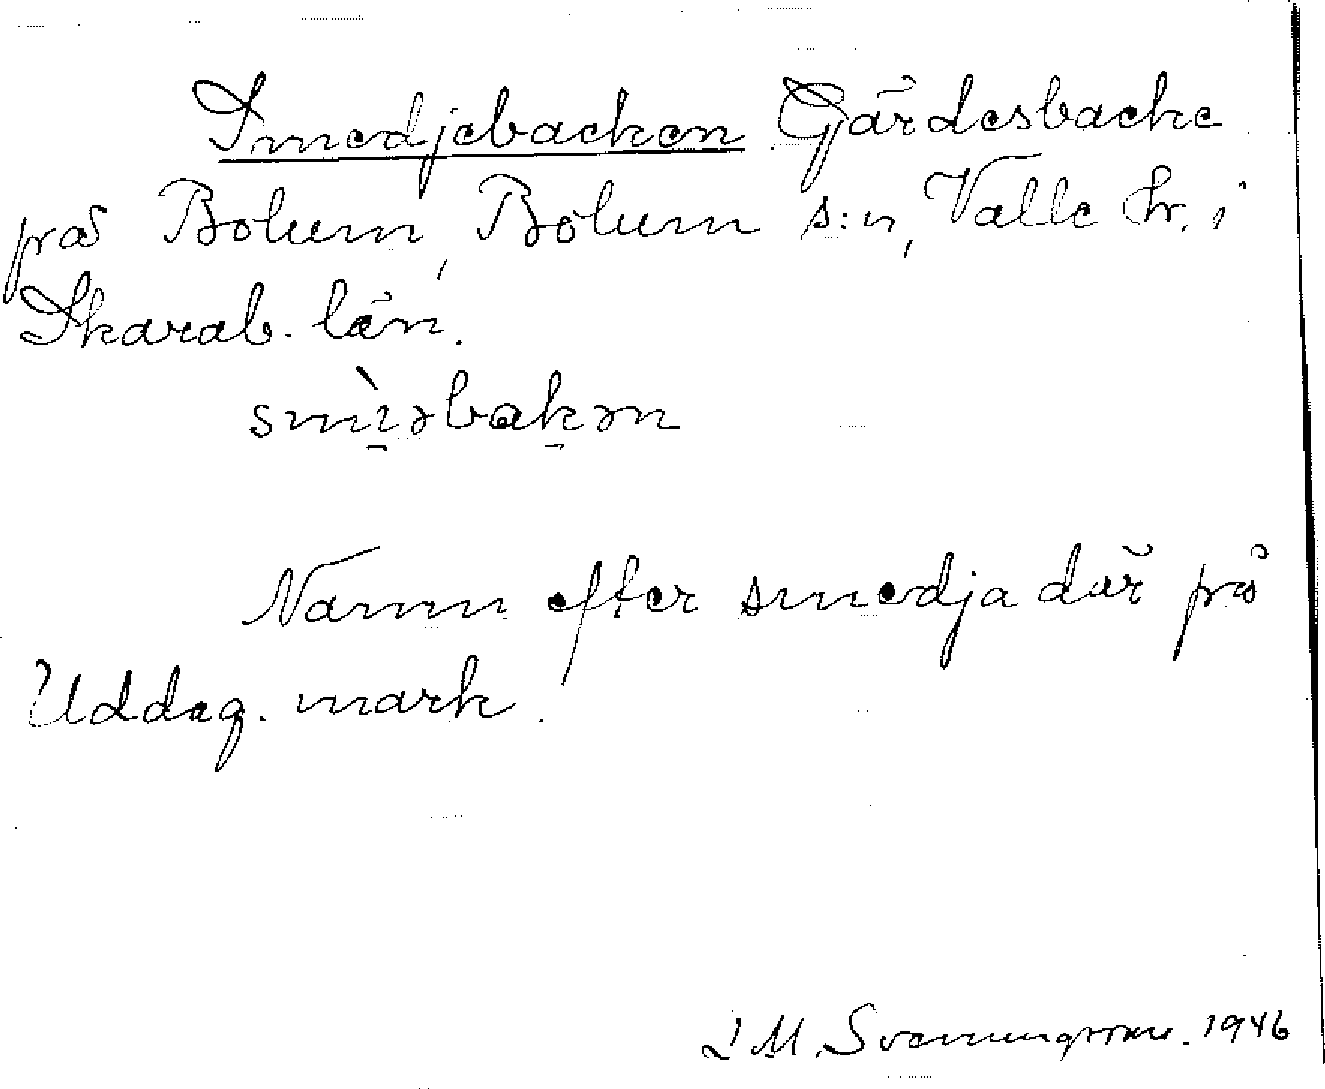 Smedjebacken Gärdesbacke
på Bolum, Bolum s:n, Valle hr. i
Skarab. län.
smìəbakən
Namn efter smedja där på
Uddag. mark.
J M. Svenungsson. 1946